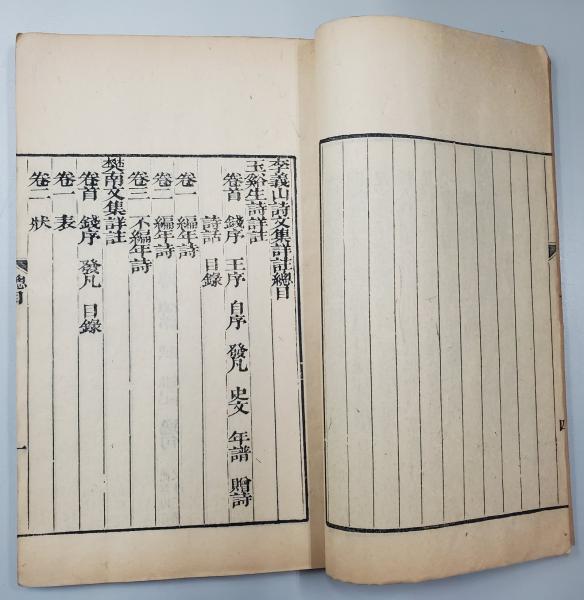 李義山詩文集詳註總目
玉谿生詩詳註
卷首 錢序 王序 自序 發凡 史文 年譜 贈詩
詩話 目錄
卷一 編年詩
卷二 編年詩
卷三 不編年詩
樊南文集詳註
卷首 錢序 發凡 目錄
卷一 表
卷二 狀
總目
一
四